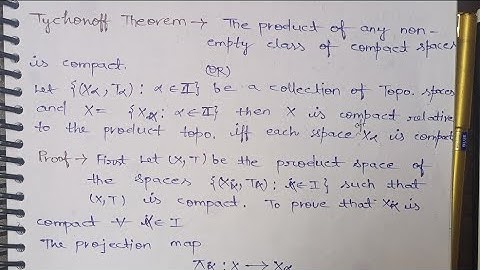 Tychonoff Theorem → The product of any non-
empty class of compact spaces
is compact.
(OR)
Let {(Xα, Tα) : α ∈ I} be a collection of Topo. spaces
and X = {Xα : α ∈ I} then X is compact relative
to the product topo. iff each space of Xα is compact
Proof → First Let (X, T) be the product space of
the spaces {(Xα, Tα) : α ∈ I} such that
(X, T) is compact. To prove that Xα is
compact ∀ α ∈ I
The projection map
πα : X → Xα